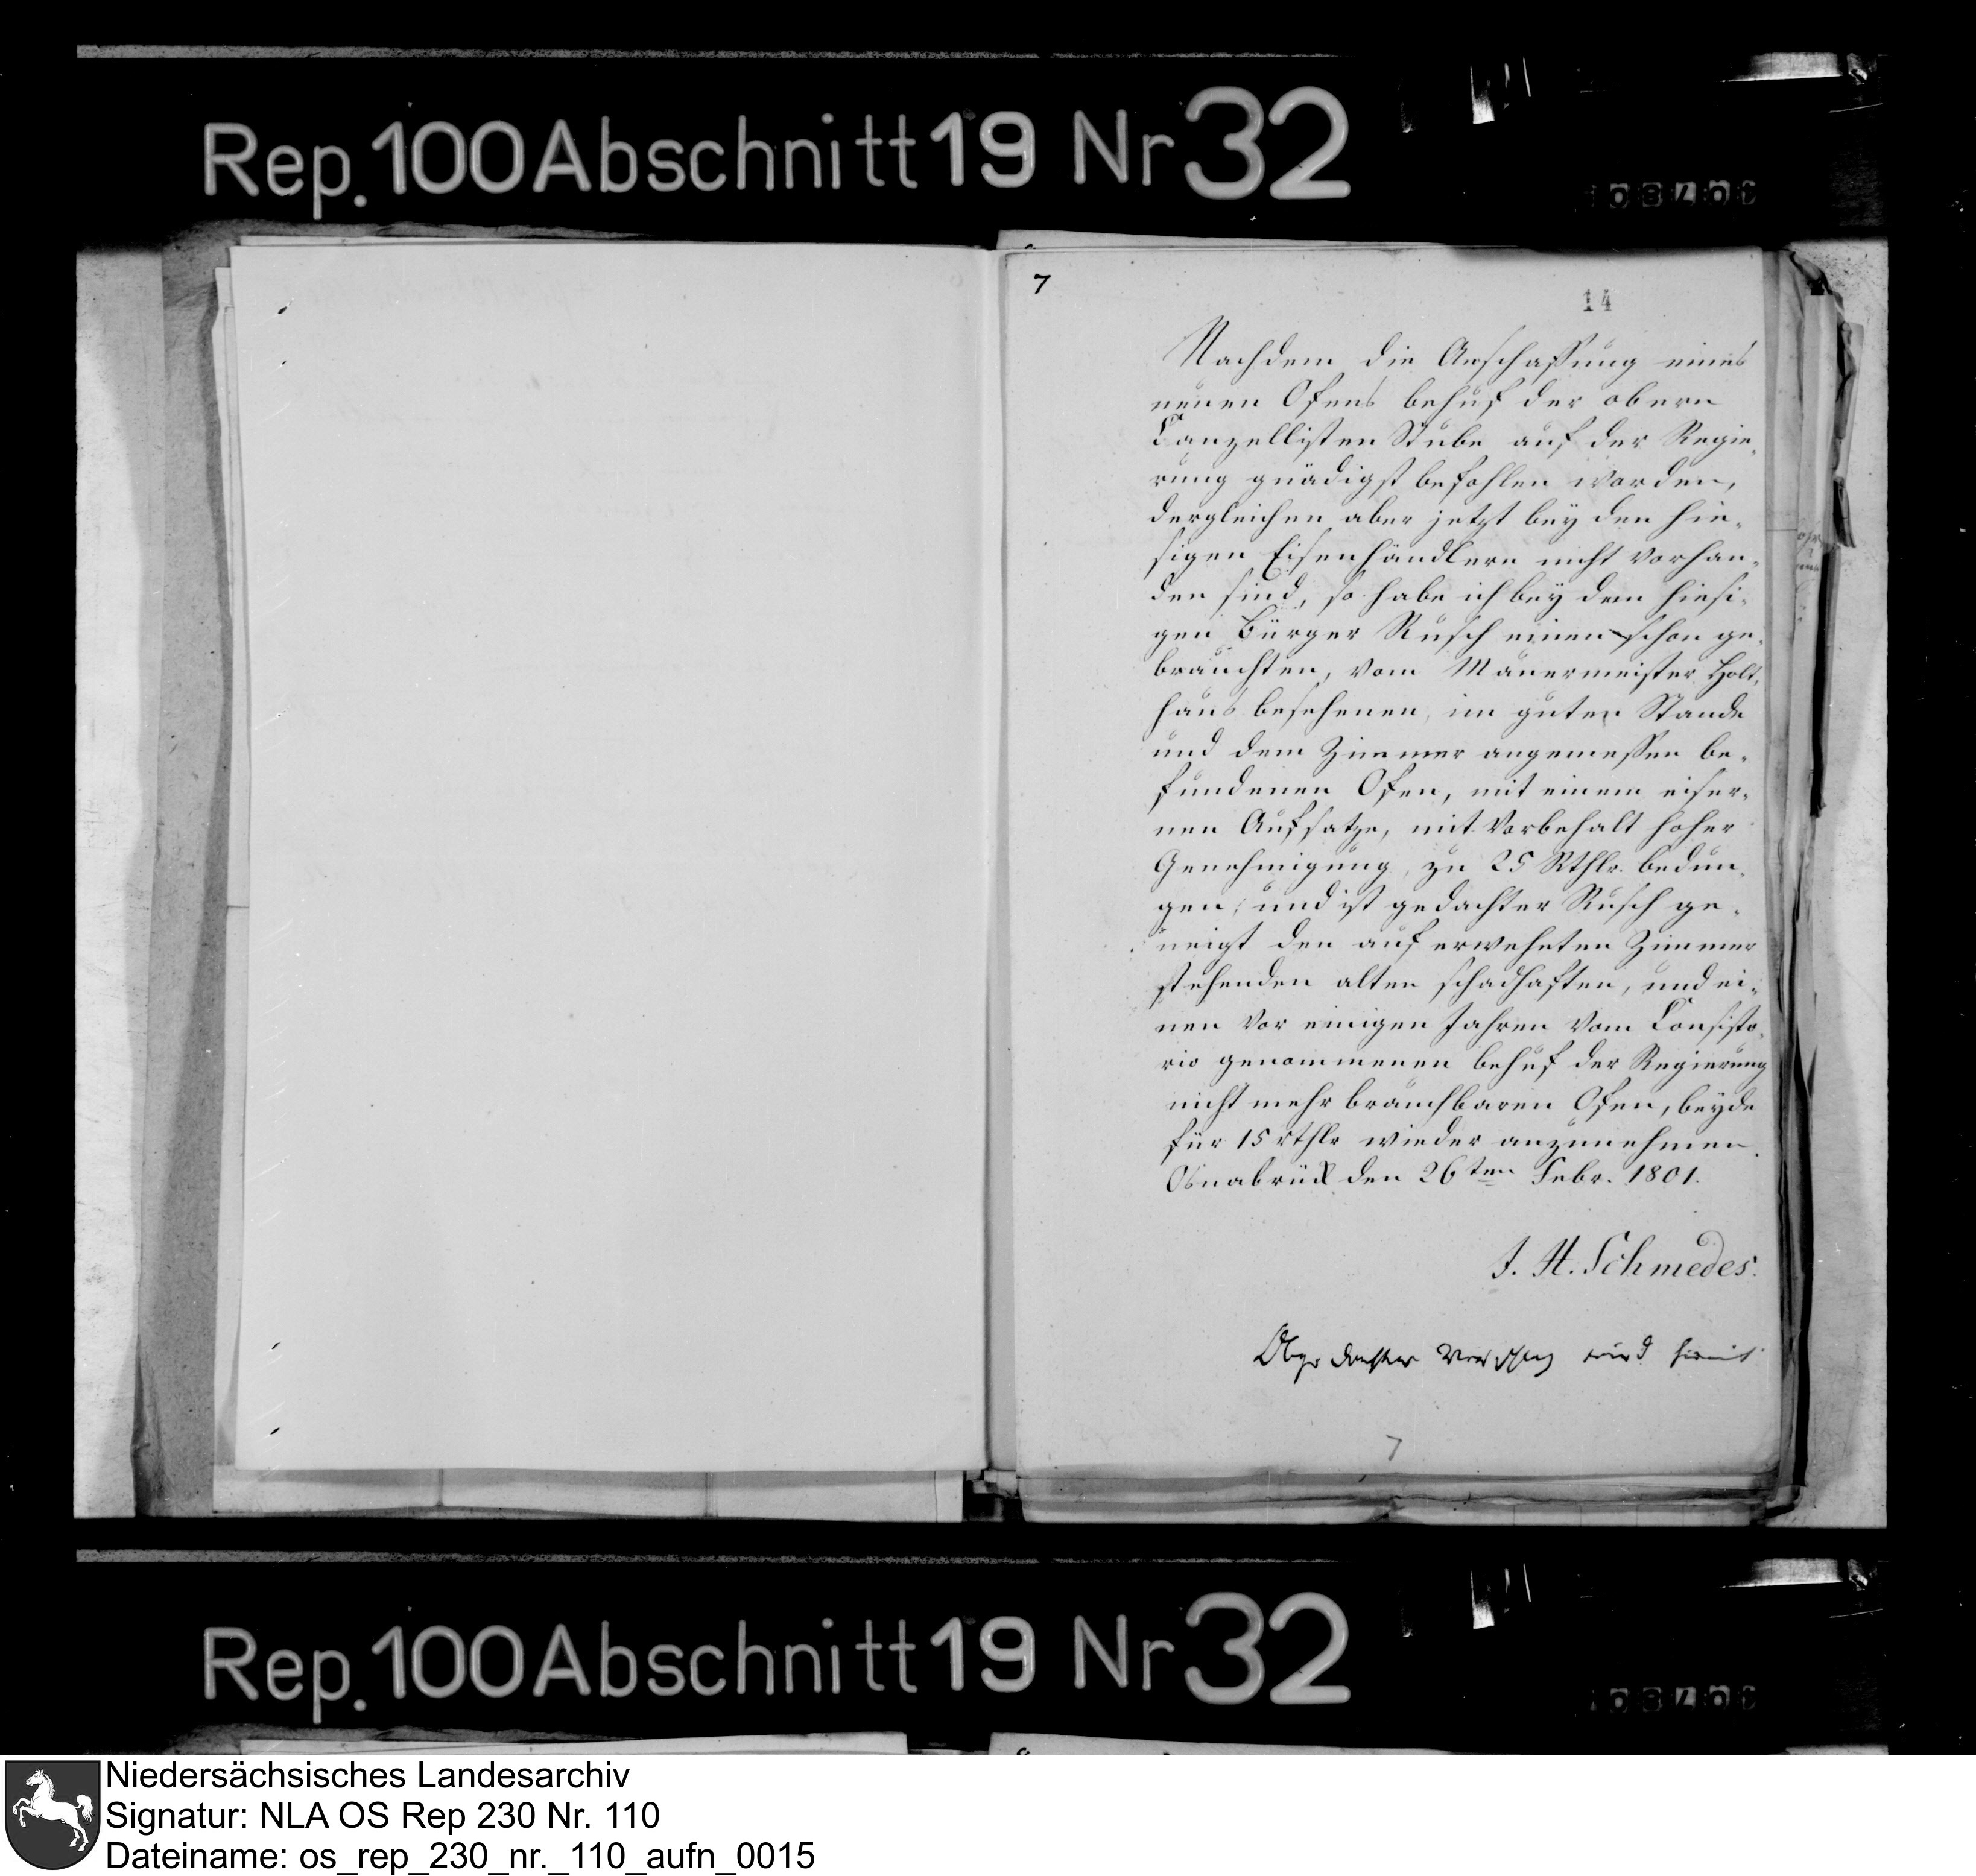 Rep. 100 Abschnitt 19 Nr 32
7
14
Nachdem die Anschaffung eines
neuen Ofens behuf der obern
Canzellisten Stube auf der Regie-
rung gnädigst befohlen worden,
dergleichen aber jetzt bey den hie-
sigen Eisenhändlern nicht vorhan-
den sind, so habe ich bey dem hiesi-
gen Bürger Rusch einen schon ge-
brauchten, vom Mauermeister Holt-
haus besehenen, im guten Stande
und dem Zimmer angemessen be-
fundenen Ofen, mit einem eiser-
nen Aufsatze, mit Vorbehalt hoher
Genehmigung, zu 25 Rthlr. bedun-
gen; und ist gedachter Rusch ge-
neigt den auf erwehnten Zimmer
stehenden alten schadhaften, und ei-
nen vor einigen Jahren vom Consisto-
rio genommenen behuf der Regierung
nicht mehr brauchbaren Ofen, beyde
für 15 rthlr wieder anzunehmen.
Osnabrück den 26ten Febr. 1801.
J. H. Schmedes.
Obgedachter Vorschlag wird hiemit
7
Rep. 100 Abschnitt 19 Nr 32
Niedersächsisches Landesarchiv
Signatur: NLA OS Rep 230 Nr. 110
Dateiname: os_rep_230_nr._110_aufn_0015